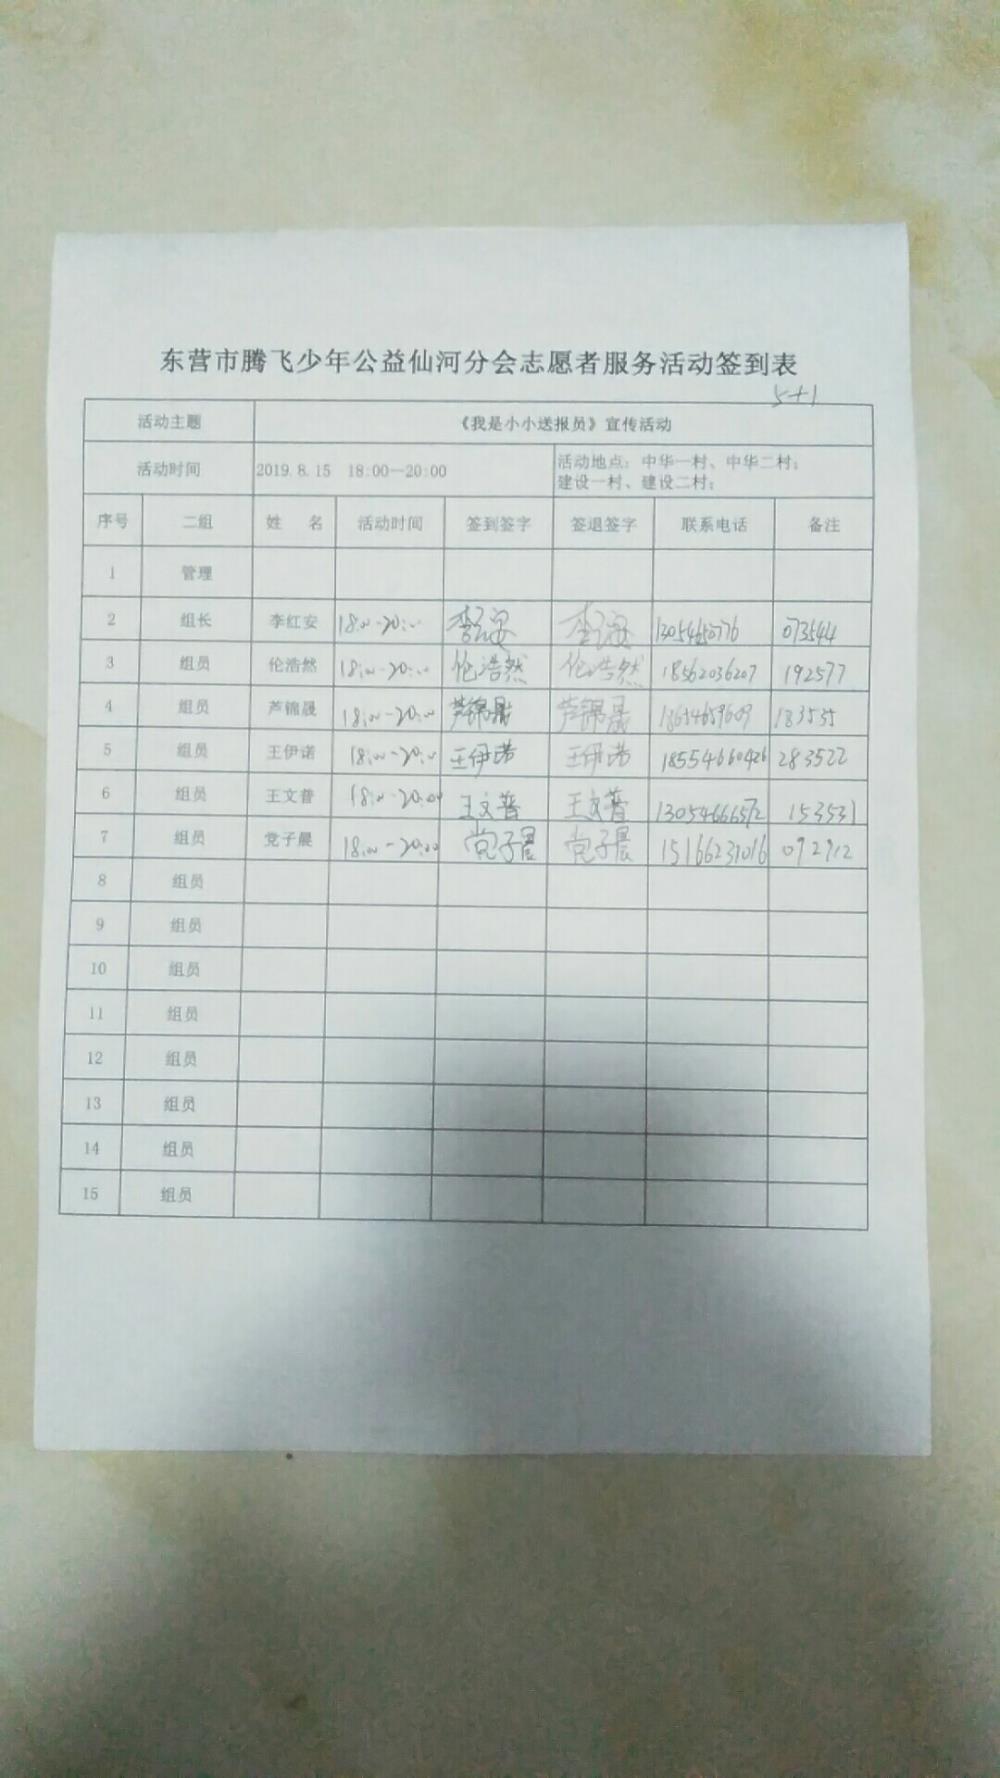 东营市腾飞少年公益仙河分会志愿者服务活动签到表
5+1
活动主题 《我是小小送报员》宣传活动
活动时间 2019.8.15 18:00—20:00 活动地点：中华一村、中华二村；
建设一村、建设二村；
序号 二组 姓 名 活动时间 签到签字 签退签字 联系电话 备注
1 管理
2 组长 李红安 18:00-20:00 李红安 李红安 13054650776 073544
3 组员 伦浩然 18:00-20:00 伦浩然 伦浩然 18562036207 192577
4 组员 芦锦晟 18:00-20:00 芦锦晟 芦锦晟 18654659609 183535
5 组员 王伊诺 18:00-20:00 王伊诺 王伊诺 18554660426 283522
6 组员 王文普 18:00-20:00 王文普 王文普 13054666572 153531
7 组员 党子晨 18:00-20:00 党子晨 党子晨 15166231016 092912
8 组员
9 组员
10 组员
11 组员
12 组员
13 组员
14 组员
15 组员